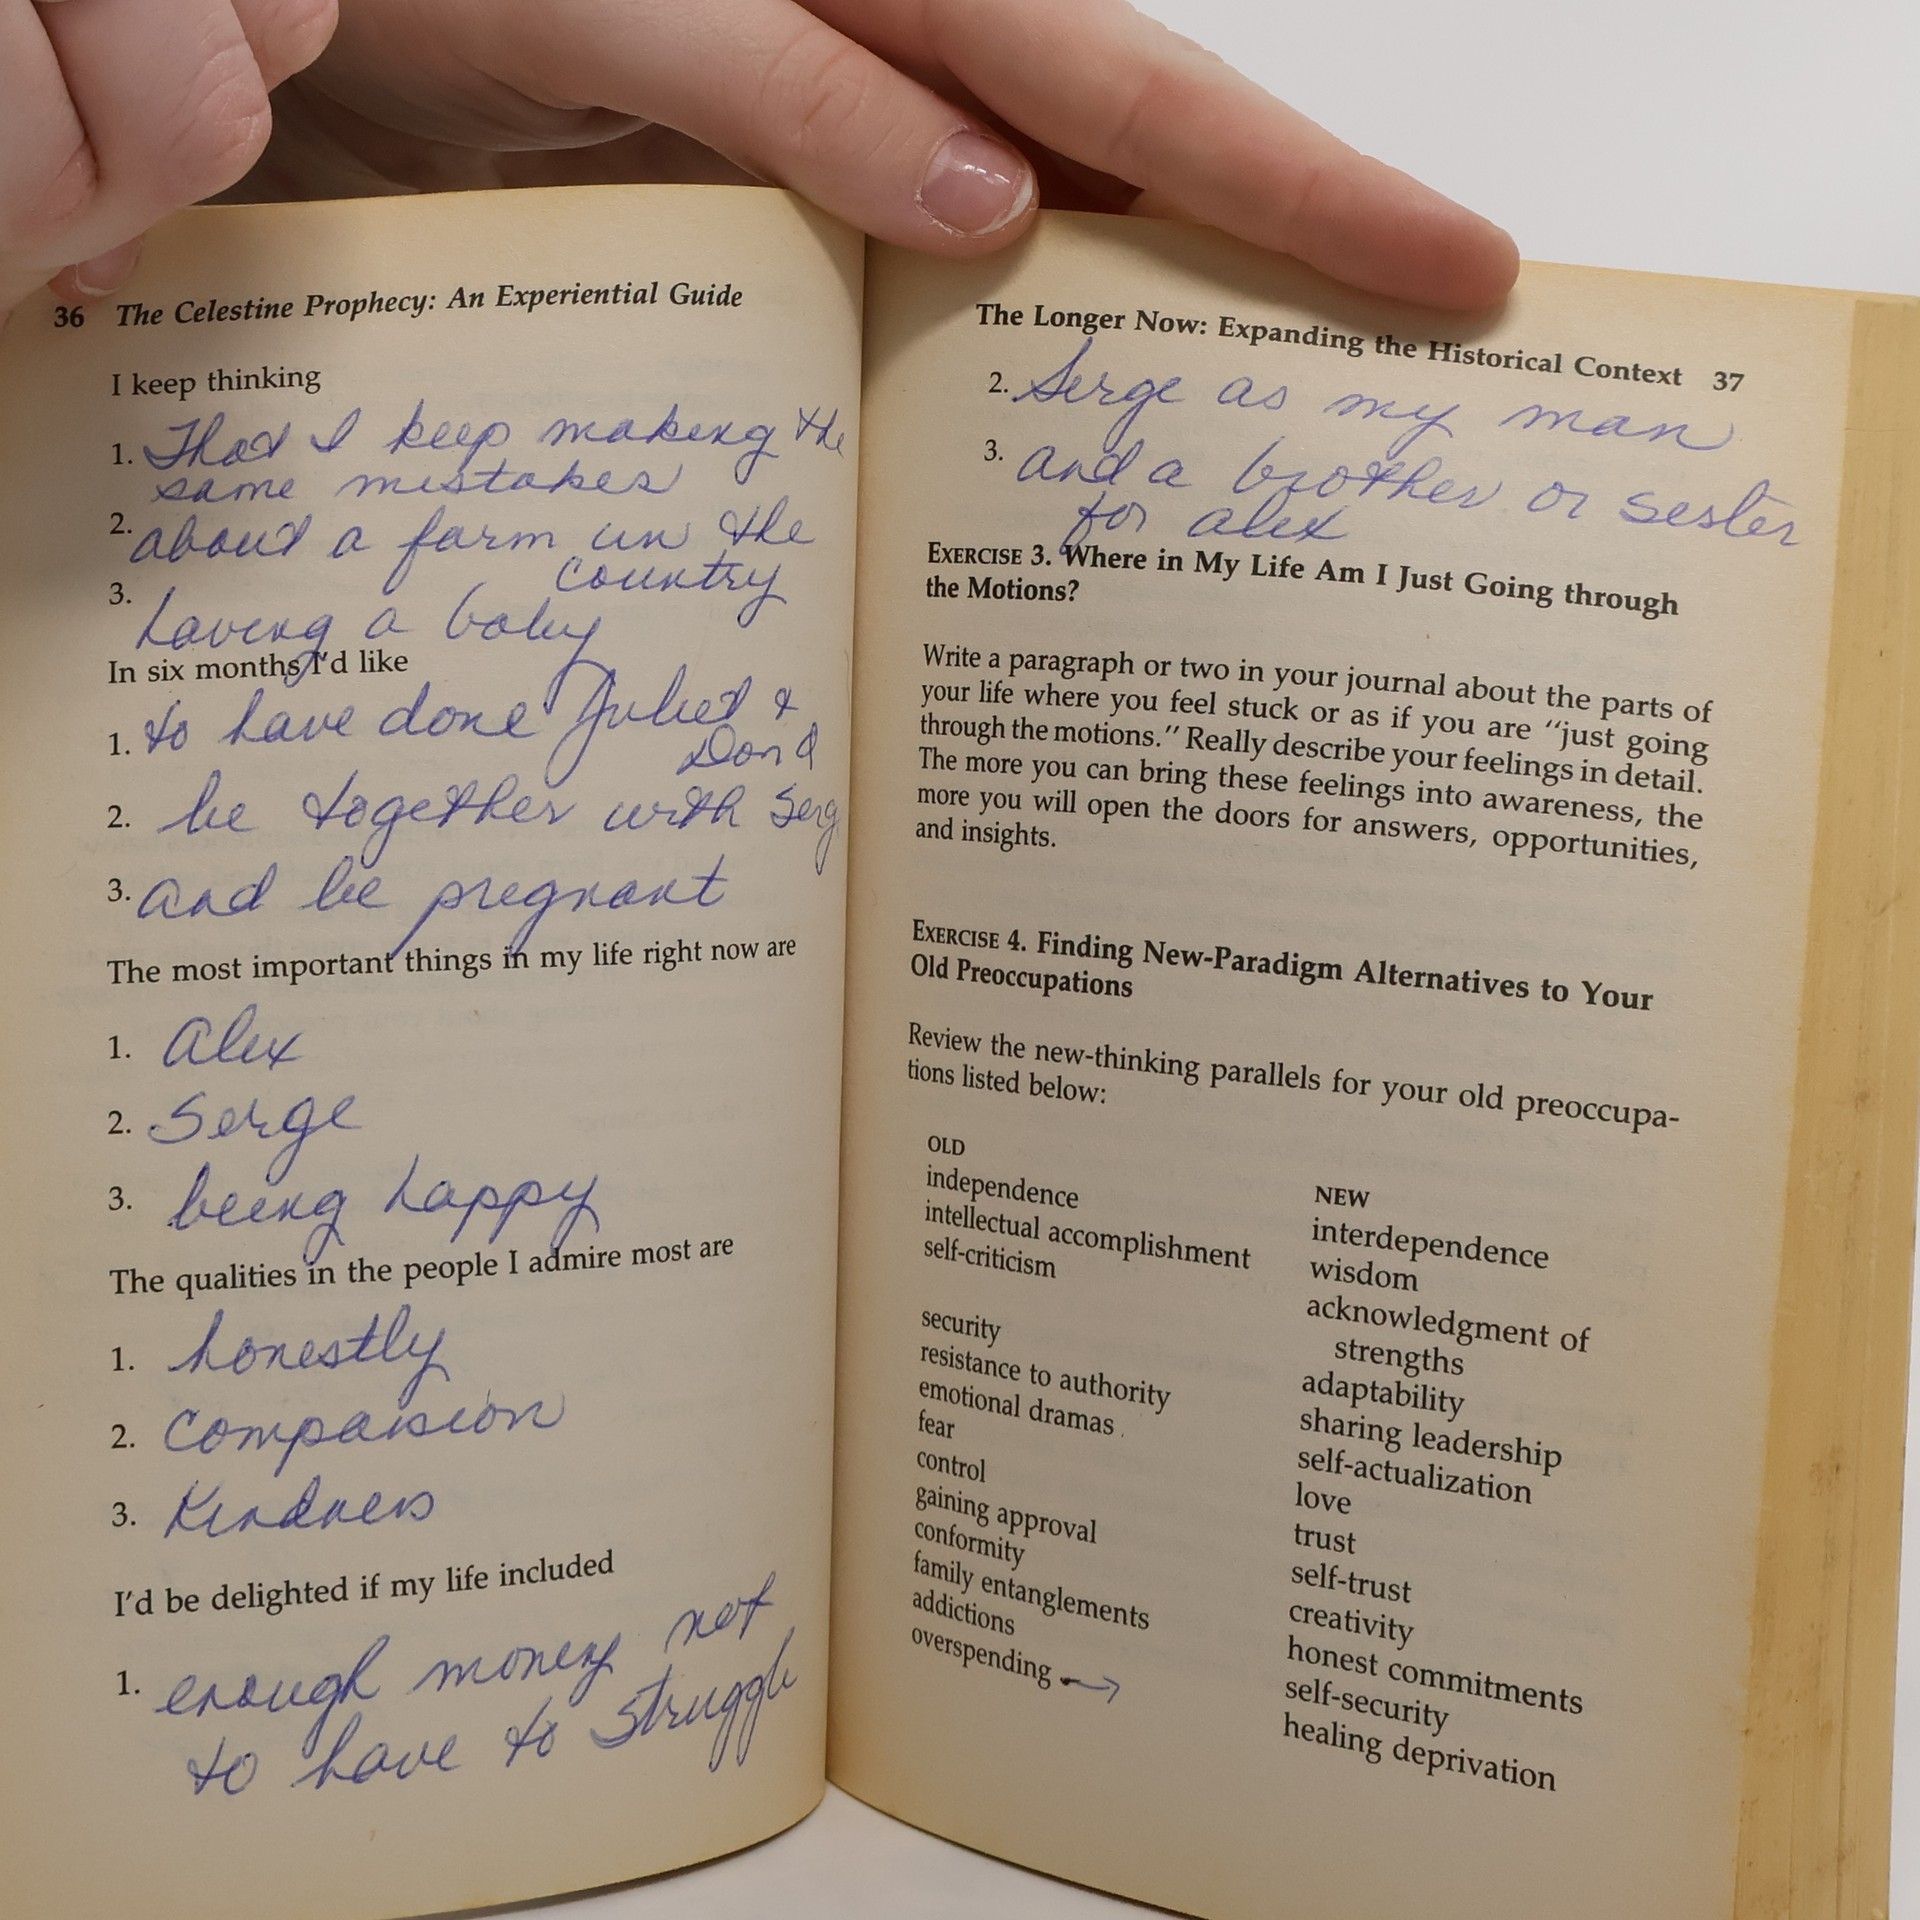 36 The Celestine Prophecy: An Experiential Guide
I keep thinking
1. That I keep making the
same mistakes
2. about a farm in the
country
3. having a baby
In six months I'd like
1. to have done Juliet &
2. be together with Serg
3. and be pregnant
The most important things in my life right now are
1. Alex
2. Serge
3. being happy
The qualities in the people I admire most are
1. honestly
2. Compassion
3. Kindness
I'd be delighted if my life included
1. enough money not
to have to struggle
The Longer Now: Expanding the Historical Context 37
2. Serge as my man
3. and a brother or sister
for alex
EXERCISE 3. Where in My Life Am I Just Going through
the Motions?
Write a paragraph or two in your journal about the parts of
your life where you feel stuck or as if you are "just going
through the motions." Really describe your feelings in detail.
The more you can bring these feelings into awareness, the
more you will open the doors for answers, opportunities,
and insights.
EXERCISE 4. Finding New-Paradigm Alternatives to Your
Old Preoccupations
Review the new-thinking parallels for your old preoccupa-
tions listed below:
OLD
independence
intellectual accomplishment
self-criticism
security
resistance to authority
emotional dramas
fear
control
gaining approval
conformity
family entanglements
addictions
overspending →
NEW
interdependence
wisdom
acknowledgment of
strengths
adaptability
sharing leadership
self-actualization
love
trust
self-trust
creativity
honest commitments
self-security
healing deprivation